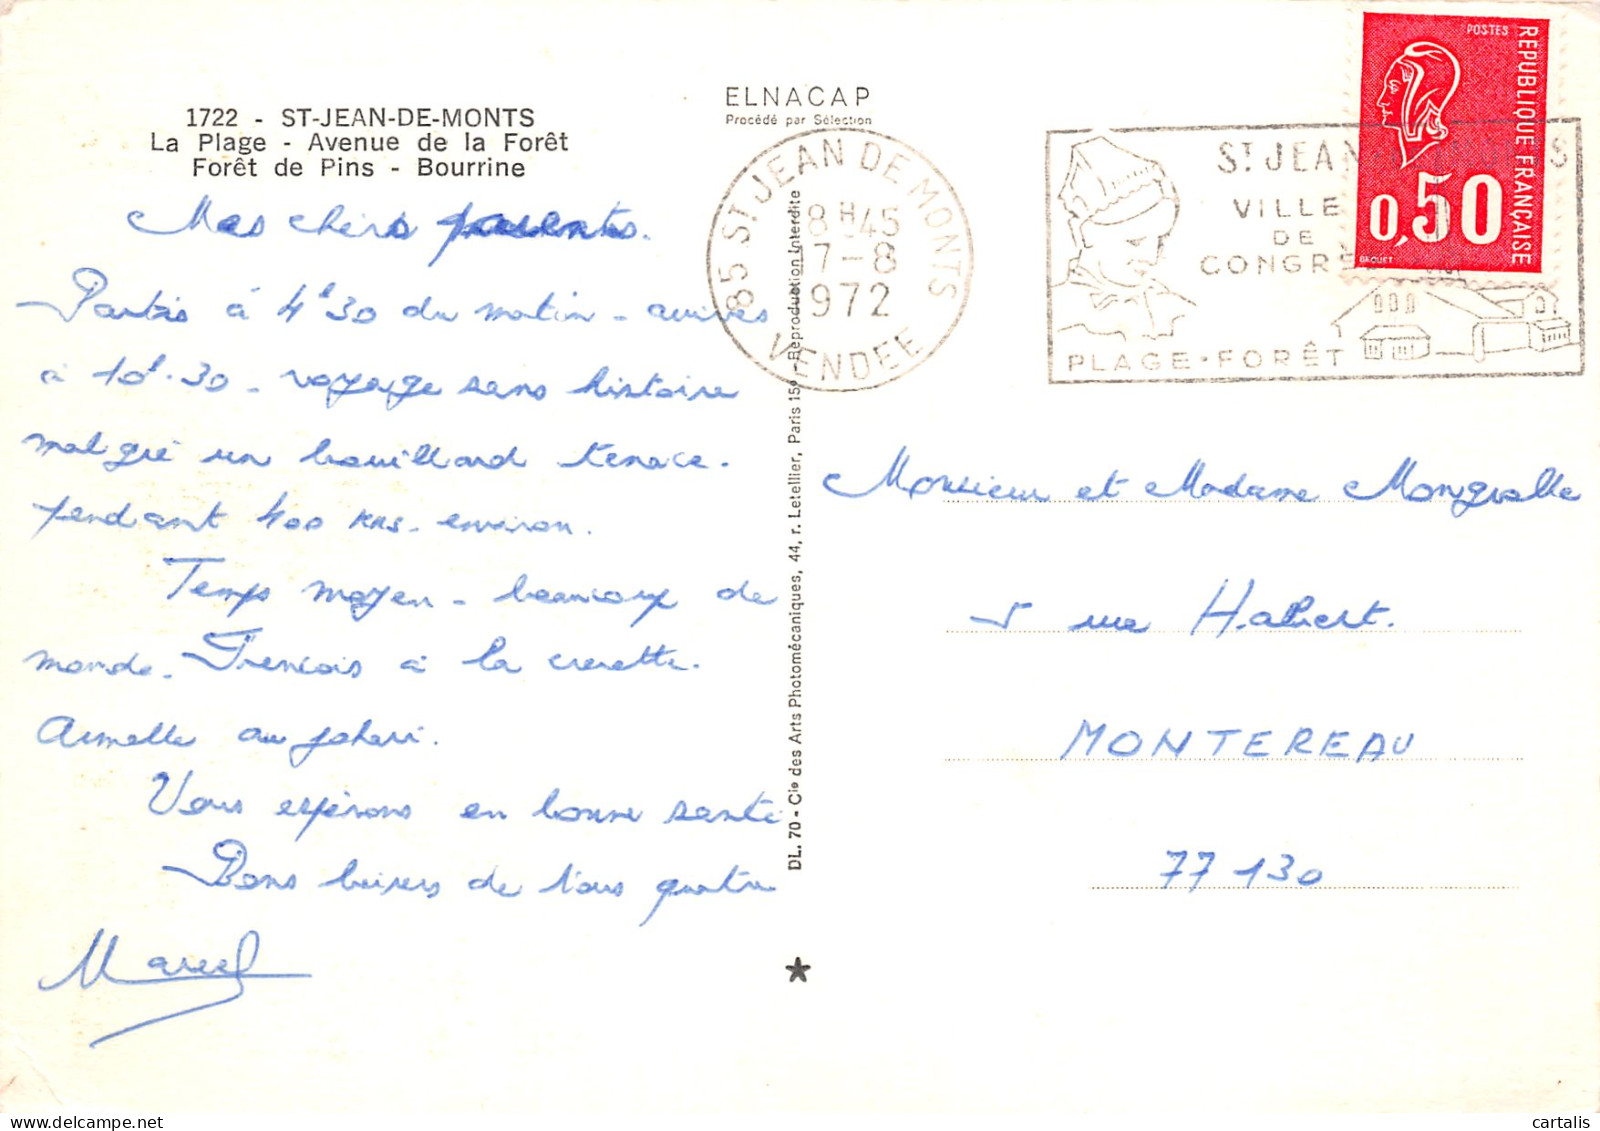 1722 - ST-JEAN-DE-MONTS
La Plage - Avenue de la Forêt
Forêt de Pins - Bourrine
ELNACAP
Procédé par Sélection
Mes chers parents.
Partis à 4h30 du matin - arrivés
à 10h.30 - voyage sans histoire
malgré un brouillard tenace.
pendant 400 kms. environ.
Temps moyen - beaucoup de
monde. François à la crevette.
Armelle au
Vous espérons en bonne santé
Bons baisers de tous quatre
Marcel
DL. 70 - Cie des Arts Photomécaniques, 44, r. Letellier, Paris 15e - Reproduction Interdite
85 ST JEAN DE MONTS
8H45
17-8
1972
VENDEE
ST JEAN
VILLE
DE
CONGRÈS
PLAGE·FORÊT
POSTES
REPUBLIQUE FRANÇAISE
0,50
BEQUET
Monsieur et Madame
5 rue
MONTEREAU
77130
cartalis